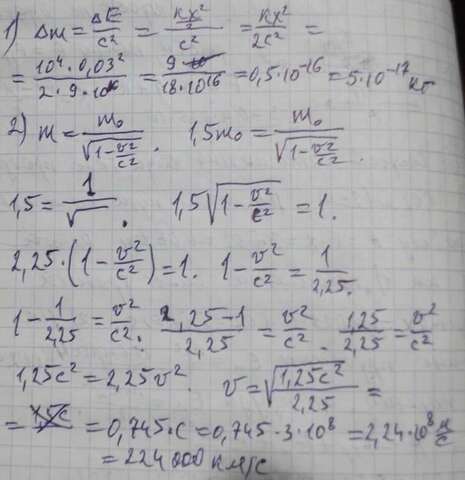 1) Δm = ΔE/c² = (kx²/2)/c² = kx²/2c² =
= 10⁴·0,03²/2·9·10¹⁶ = 9/18·10¹⁶ = 0,5·10⁻¹⁶ = 5·10⁻¹⁷ кг
2) m = m₀/√(1-v²/c²). 1,5m₀ = m₀/√(1-v²/c²).
1,5 = 1/√ . 1,5√(1-v²/c²) = 1.
2,25·(1-v²/c²) = 1. 1-v²/c² = 1/2,25.
1-1/2,25 = v²/c². 2,25-1/2,25 = v²/c². 1,25/2,25 = v²/c²
1,25c² = 2,25v². v = √(1,25c²/2,25) =
= = 0,745·c = 0,745·3·10⁸ = 2,24·10⁸ м/с
= 224 000 км/с